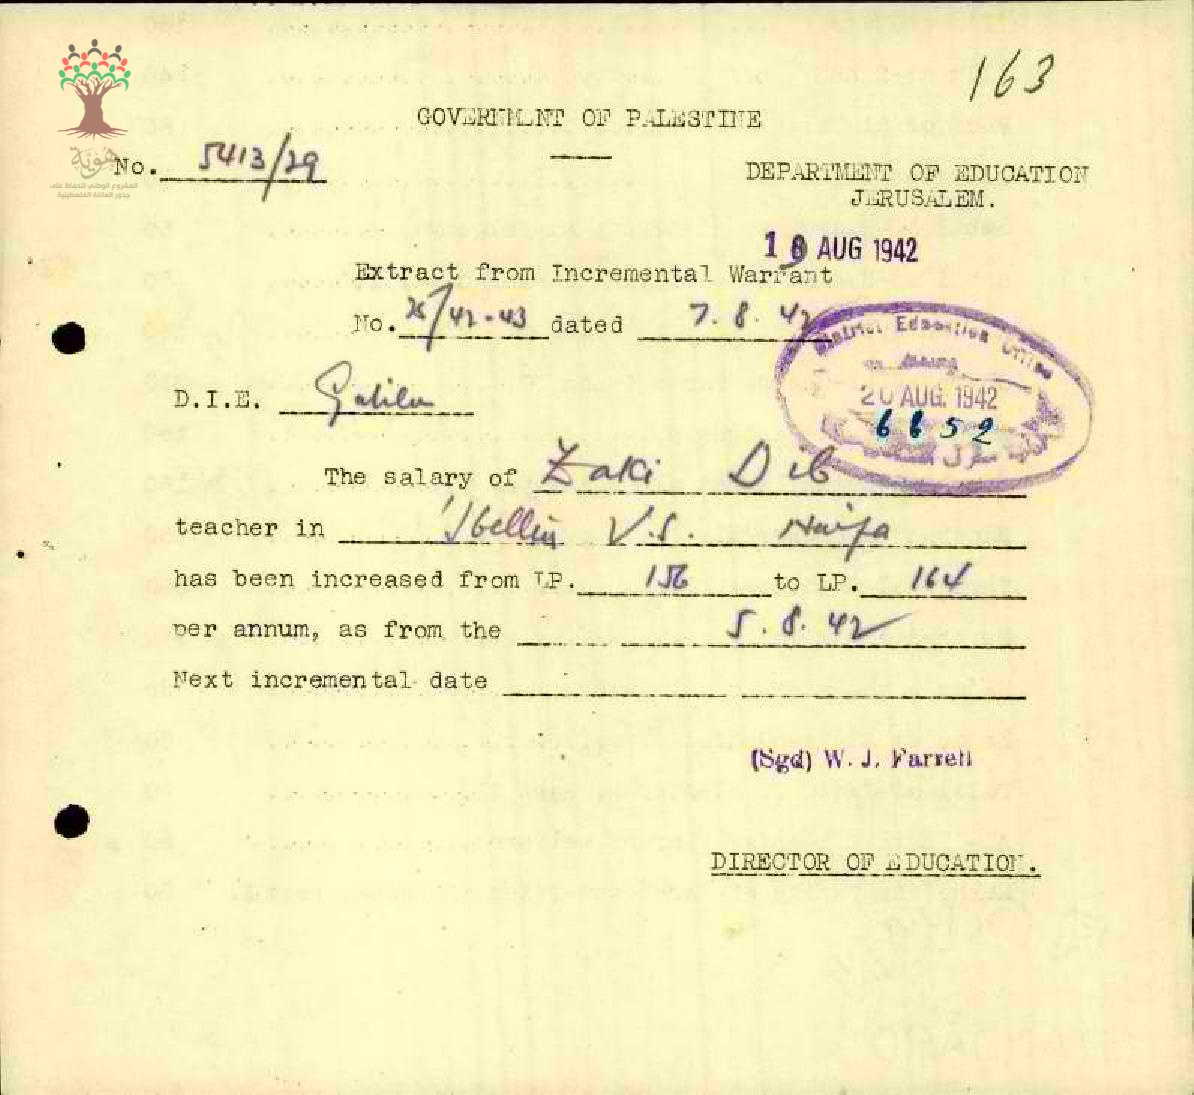 163
GOVERNMENT OF PALESTINE
هوية
المشروع الوطني للحفاظ على
جذور العائلة الفلسطينية
No. 5413/29
DEPARTMENT OF EDUCATION
JERUSALEM.
AUG 1942
Extract from Incremental Warrant
No. 25/42-43 dated 7.8.42
District Education Office
20 AUG. 1942
6652
D.I.E. Galilee
The salary of Zaki Dib
teacher in 'Ibellin V.S. Haifa
has been increased from LP. 156 to LP. 164
per annum, as from the 5.8.42
Next incremental date
(Sgd) W. J. Farrell
DIRECTOR OF EDUCATION.